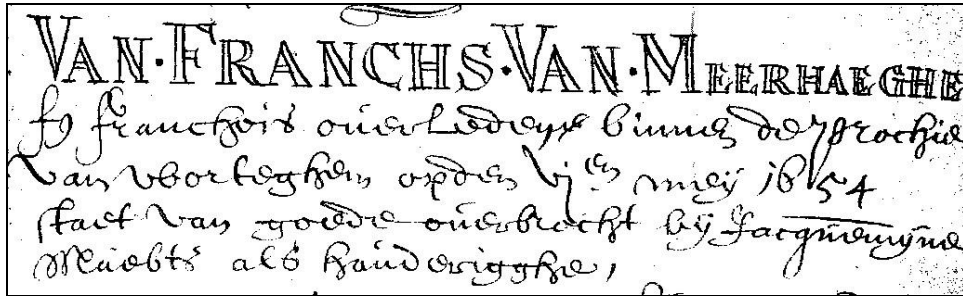 VAN·FRANCHS·VAN·MEERHAEGHE
fs franchois overledene binnen de prochie
van worteghem opden vjen mey 1654
staet van goede overbrocht by Jacquemyne
als hauderigghe,